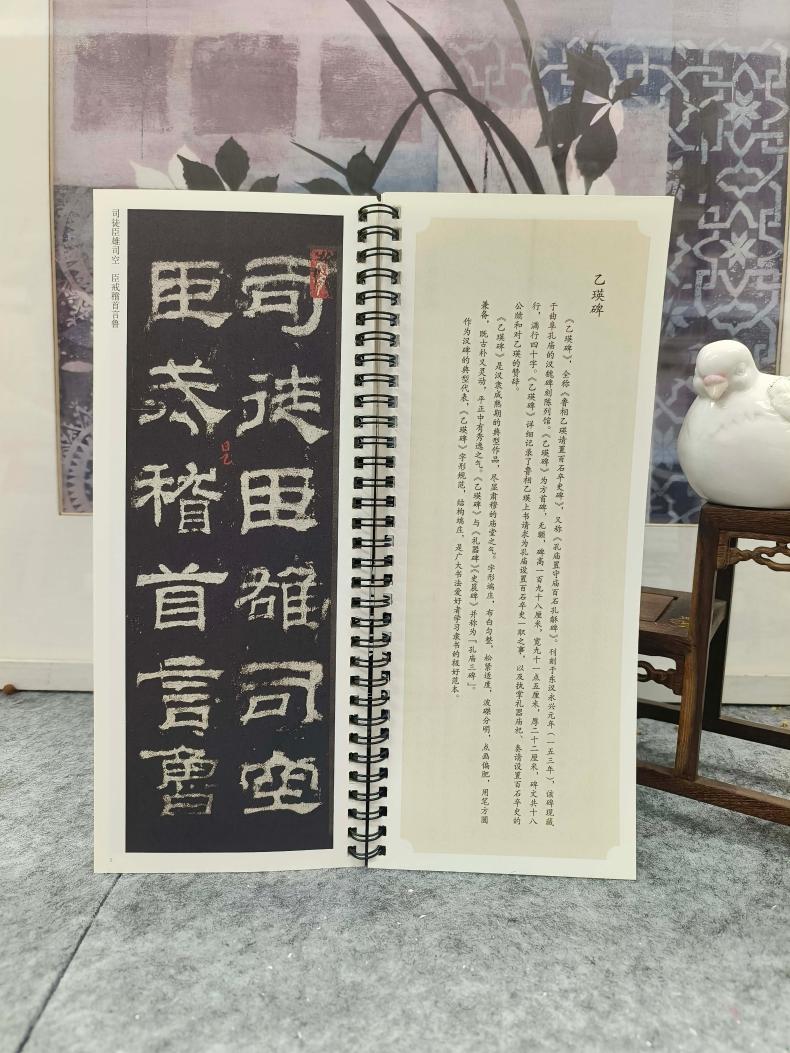 乙瑛碑
《乙瑛碑》，全称《鲁相乙瑛请置百石卒史碑》，又称《孔庙置守庙百石孔龢碑》。刊刻于东汉永兴元年（一五三年），该碑现藏
于曲阜孔庙的汉魏碑刻陈列馆。《乙瑛碑》为方首碑，无额，碑高一百九十八厘米，宽九十一点五厘米，厚二十二厘米，碑文共十八
行，满行四十字。《乙瑛碑》详细记录了鲁相乙瑛上书请求为孔庙设置百石卒史一职之事，以及执掌礼器庙祀、奏请设置百石卒史的
公牍和对乙瑛的赞辞。
《乙瑛碑》是汉隶成熟期的典型作品，尽显肃穆的庙堂之气。字形端庄，布白匀整，松紧适度，波磔分明，点画偏肥，用笔方圆
兼备，既古朴又灵动，平正中有秀逸之气。《乙瑛碑》与《礼器碑》《史晨碑》并称为「孔庙三碑」。
作为汉碑的典型代表，《乙瑛碑》字形规范，结构端庄，是广大书法爱好者学习隶书的极好范本。
司徒臣雄司空
臣戒稽首言魯
司徒臣雄司空 臣戒稽首言鲁